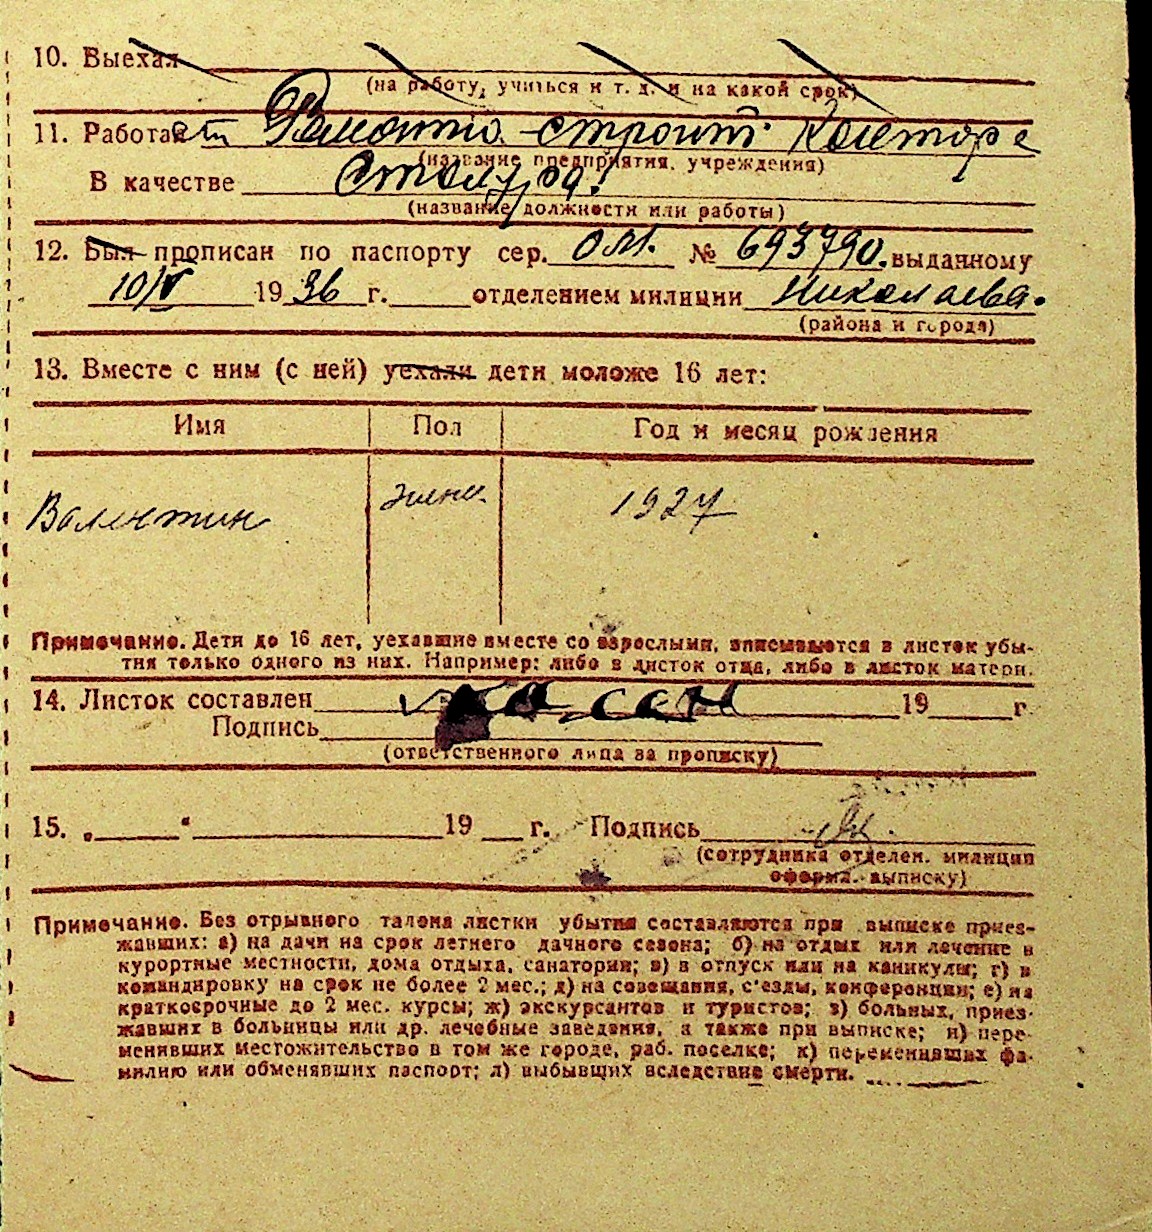 10. Выехал
(на работу, учиться и т. д. и на какой срок)
11. Работает Ремонтно-строит. Конторе
(название предприятия, учреждения)
В качестве Столяра.
(название должности или работы)
12. Был прописан по паспорту сер. ОМ. № 693790. выданному
10/V 1936 г. отделением милиции Николаева.
(района и города)
13. Вместе с ним (с ней) уехали дети моложе 16 лет:
Имя Пол Год и месяц рождения
Валентин женск 1927
Примечание. Дети до 16 лет, уехавшие вместе со взрослыми, вписываются в листок убы-
тия только одного из них. Например: либо в листок отца, либо в листок матери.
14. Листок составлен 19 г
Подпись
(ответственного лица за прописку)
15. „ “ 19 г. Подпись
(сотрудника отделен. милиции
оформл. выписку)
Примечание. Без отрывного талона листки убытия составляются при выписке приез-
жавших: а) на дачи на срок летнего дачного сезона; б) на отдых или лечение в
курортные местности, дома отдыха, санатории; в) в отпуск или на каникулы; г) в
командировку на срок не более 2 мес.; д) на совещания, с'езды, конференции; е) на
краткосрочные до 2 мес. курсы; ж) экскурсантов и туристов; з) больных, приез-
жавших в больницы или др. лечебные заведения, а также при выписке; и) пере-
менивших местожительство в том же городе, раб. поселке; к) переменивших фа-
милию или обменявших паспорт; л) выбывших вследствие смерти.